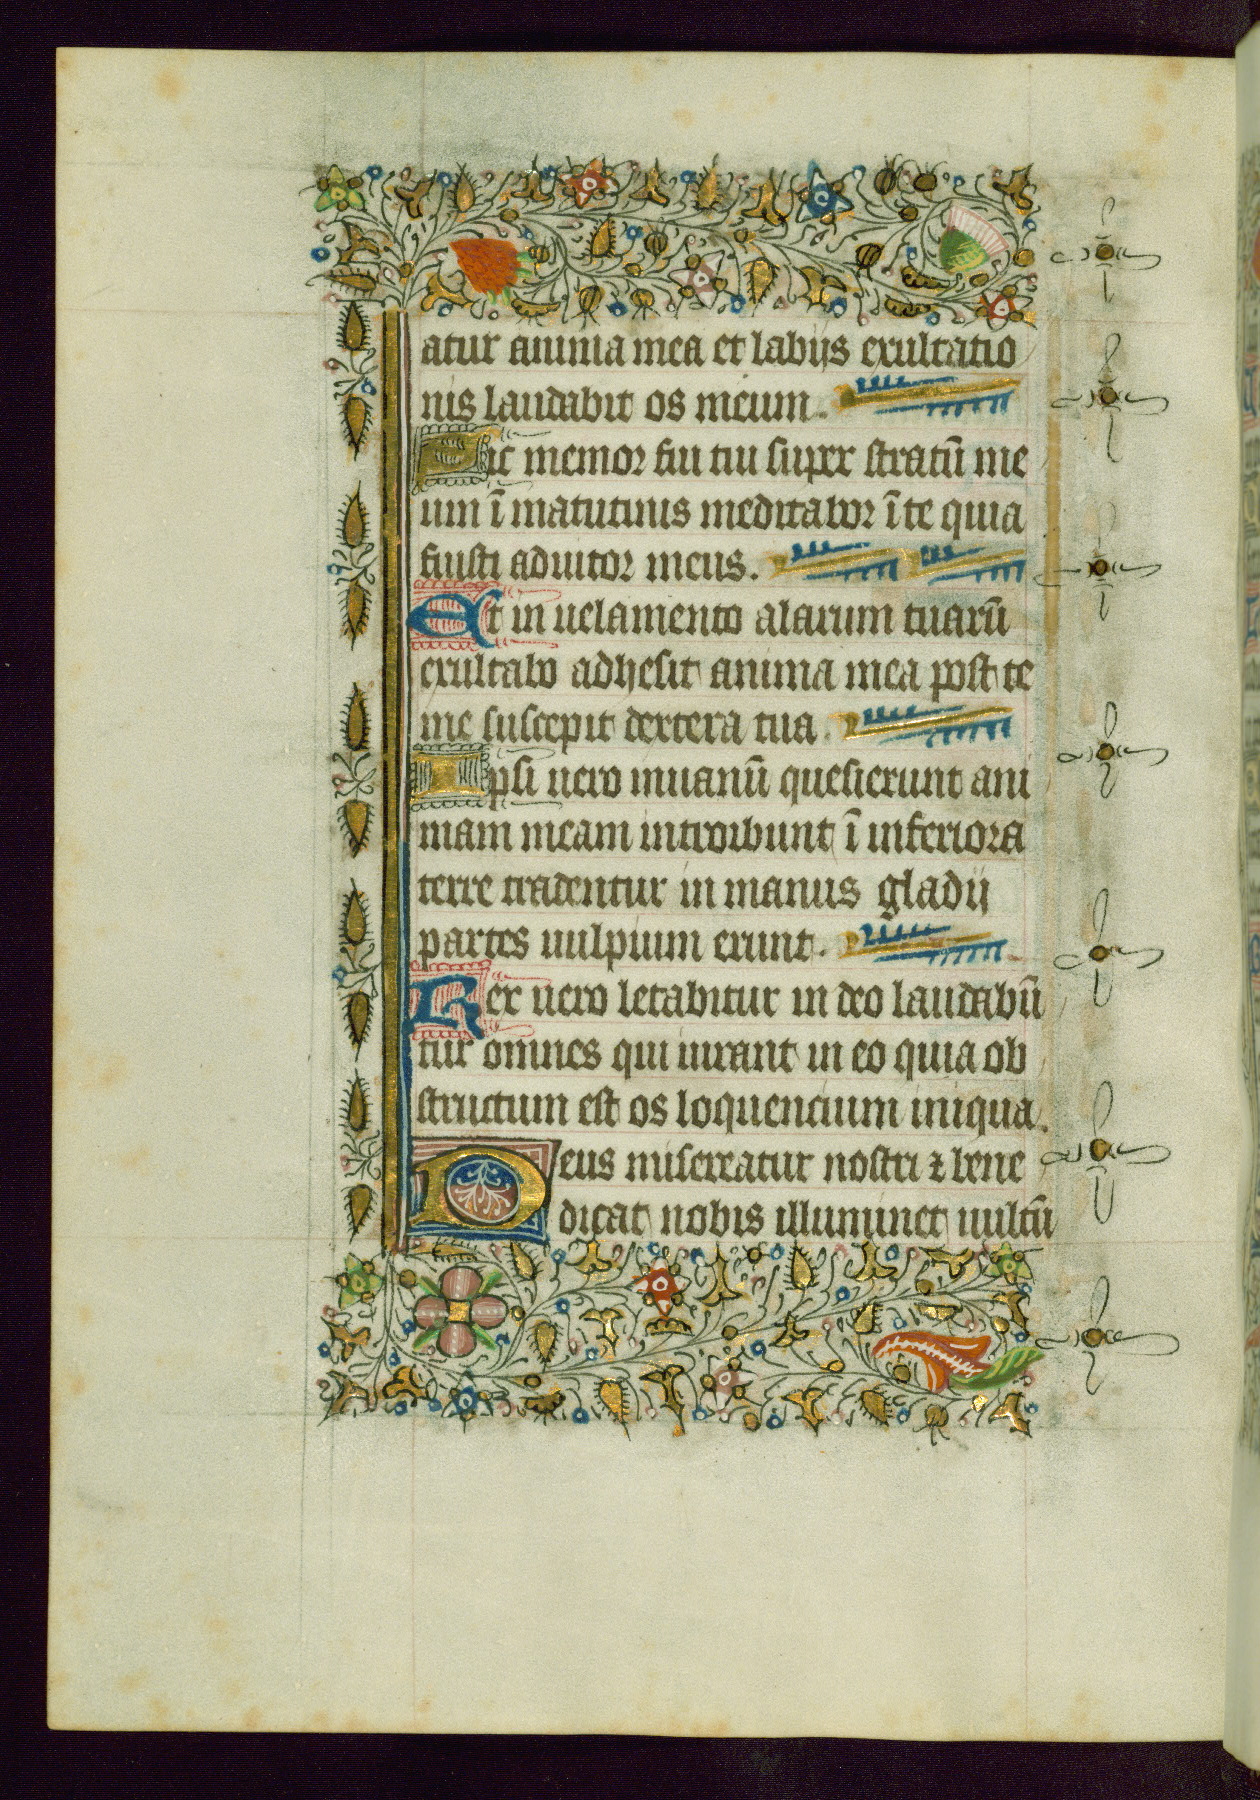 atur anima mea et labijs exultatio
nis laudabit os meum.
Sic memor fui tui super stratū me
um ī matutinis meditabor ī te quia
fuisti adiutor meus.
Et in uelamento alarum tuarū
exultabo adhesit anima mea post te
me suscepit dextera tua.
Ipsi uero inuanū quesierunt ani
mam meam introibunt ī inferiora
terre tradentur in manus gladij
partes uulpium erunt.
Rex uero letabitur in deo laudabū
tur omnes qui iurant in eo quia ob
structum est os loquencium iniqua.
Deus misereatur nostri ⁊ bene
dicat nobis illuminet uultū